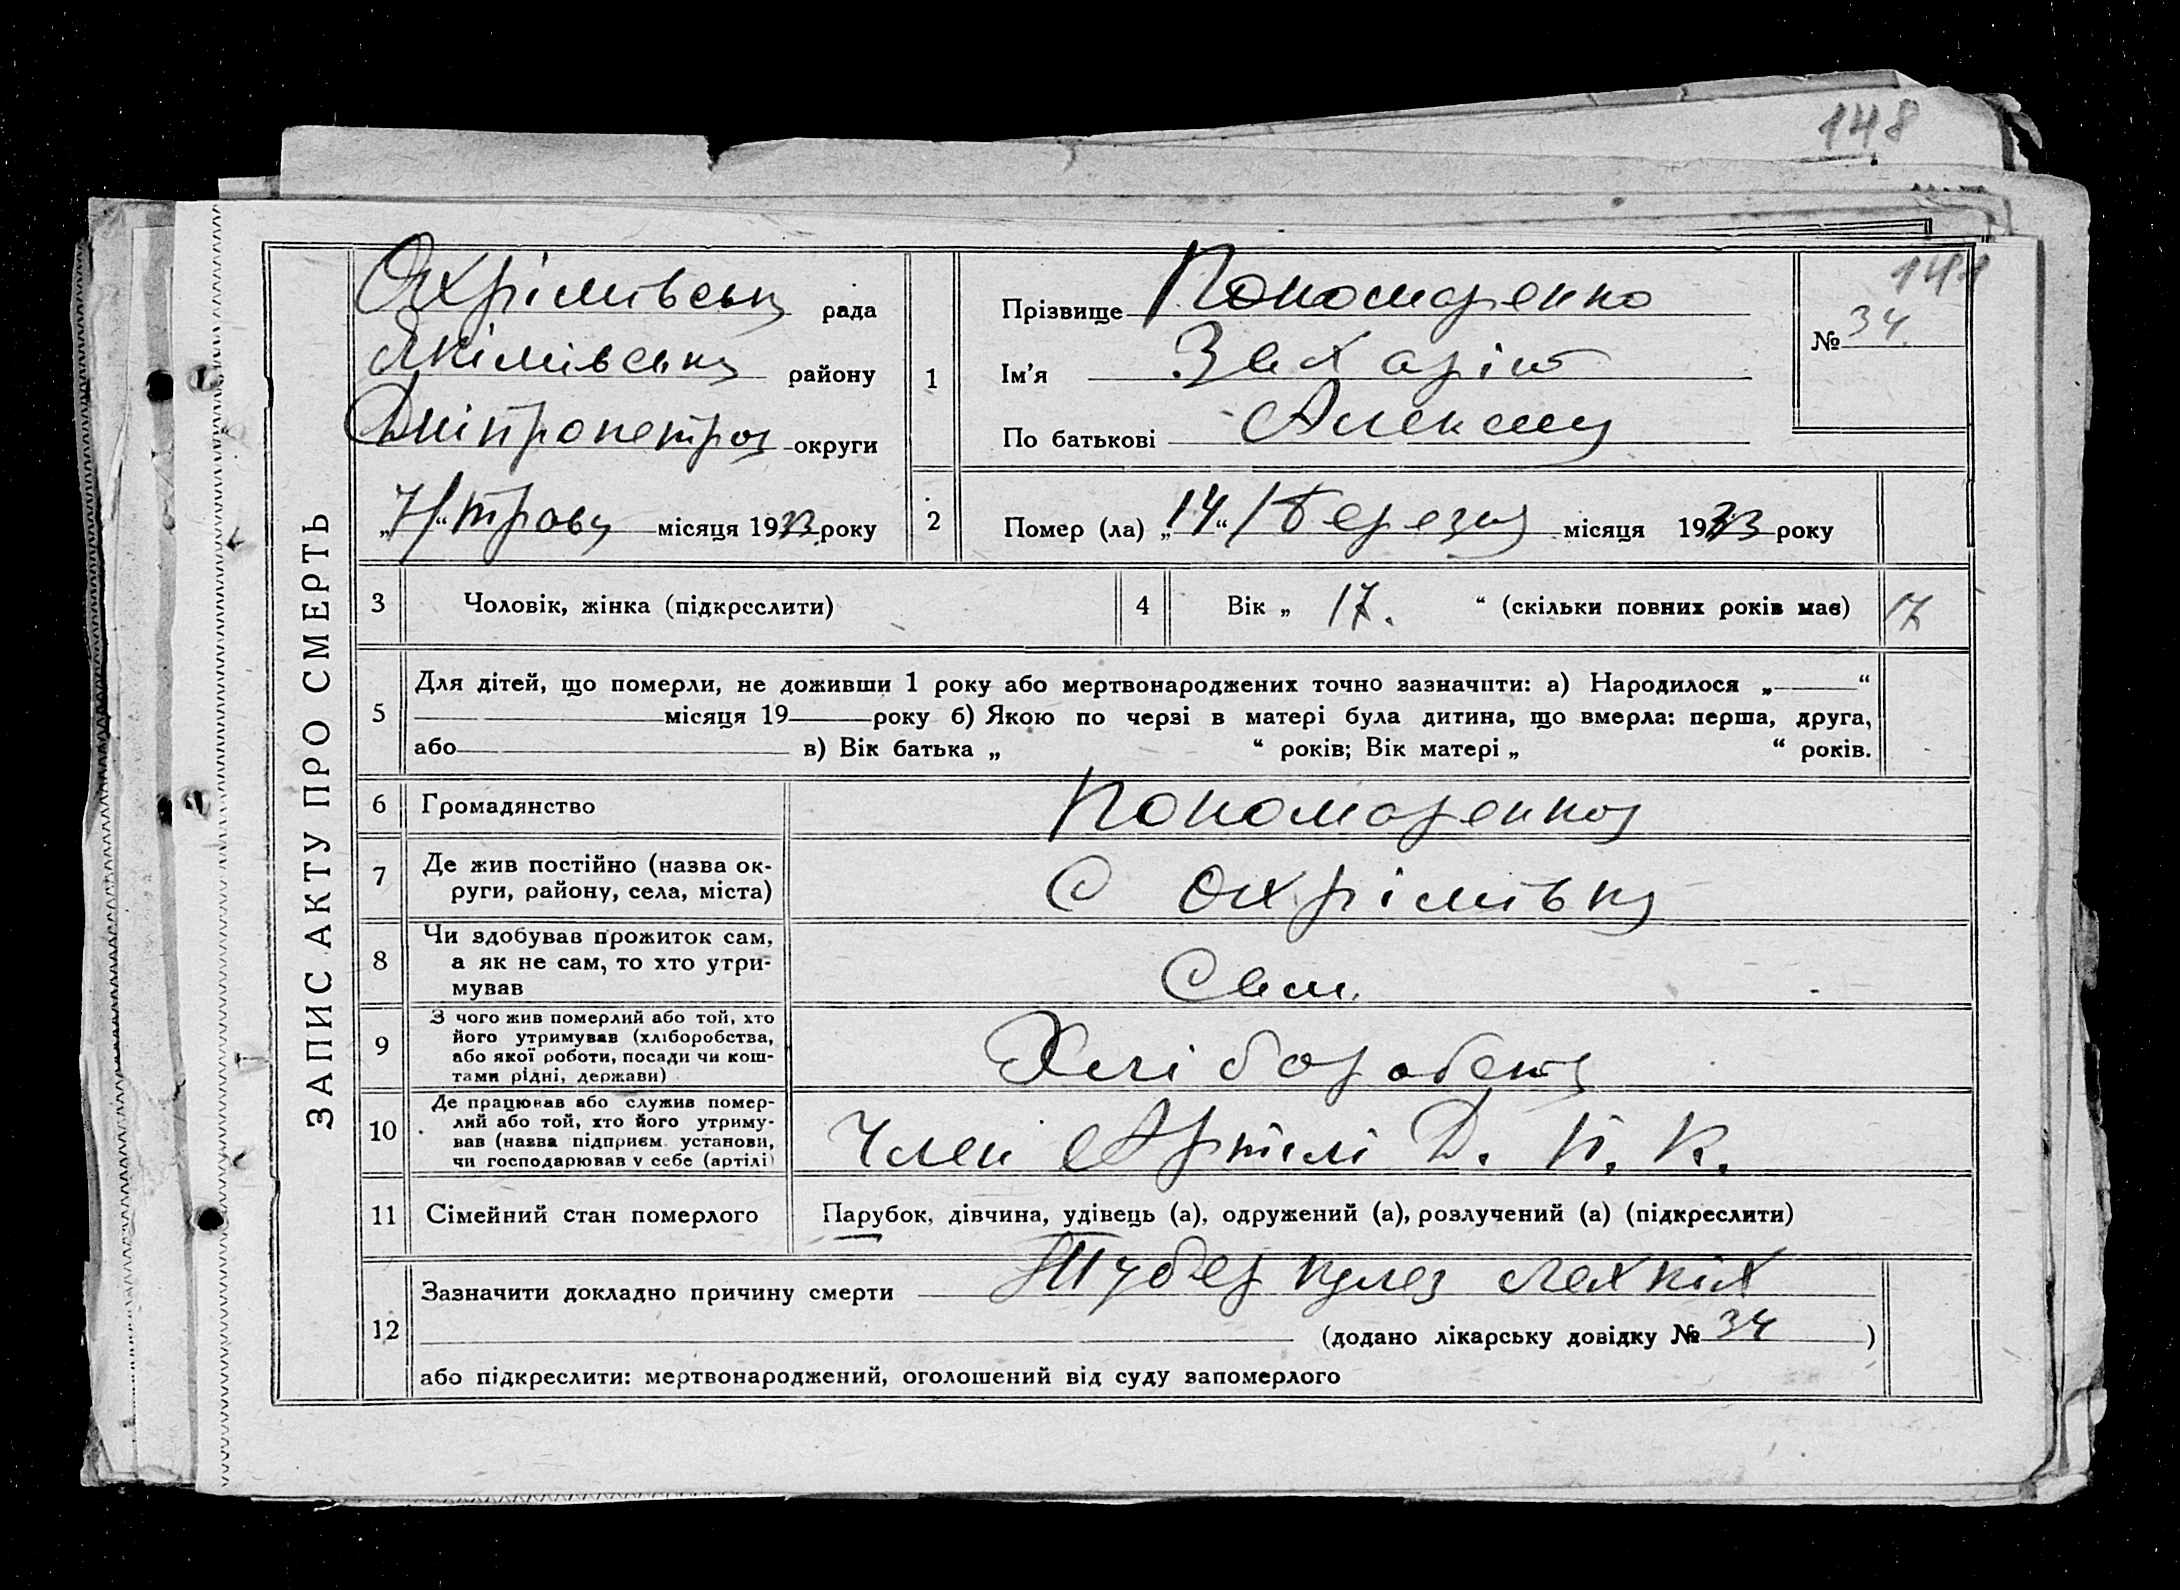 148
141
ЗАПИС АКТУ ПРО СМЕРТЬ
Охрімівськ рада
Якімівськ району
Дніпропетров округи
„7/“ траву місяця 1933 року
1
Прізвище Пономаренко
Ім'я Захарій
По батькові Алексєєв
№ 34
2 Помер (ла) „14“ / березня місяця 1933 року
3 Чоловік, жінка (підкреслити)
4 Вік „ 17. “ (скільки повних років має) 17
5 Для дітей, що померли, не доживши 1 року або мертвонароджених точно зазначити: а) Народилося „ “
місяця 19 року б) Якою по черзі в матері була дитина, що вмерла: перша, друга,
або в) Вік батька „ “ років; Вік матері „ “ років.
6 Громадянство Пономаренко
7 Де жив постійно (назва ок-
руги, району, села, міста) С Охрімівка
8 Чи здобував прожиток сам,
а як не сам, то хто утри-
мував Сам.
9 З чого жив померлий або той, хто
його утримував (хліборобства,
або якої роботи, посади чи кош-
тами рідні, держави) Хліборобець
10 Де працював або служив помер-
лий або той, хто його утриму-
вав (назва підприєм. установи,
чи господарював у себе (артілі) Член Артілі Д. Н. К.
11 Сімейний стан померлого Парубок, дівчина, удівець (а), одружений (а), розлучений (а) (підкреслити)
12 Зазначити докладно причину смерти Туберкулез лехкіх
(додано лікарську довідку № 34 )
або підкреслити: мертвонароджений, оголошений від суду запомерлого